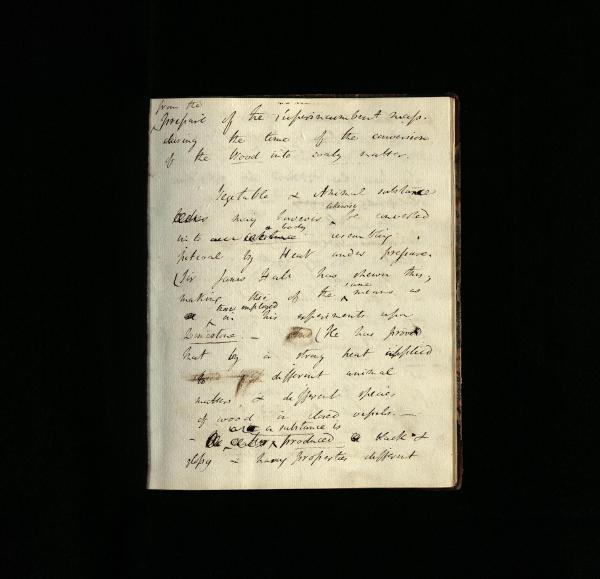 from the
pressure of the superincumbent mass.
during the time of the conversion
of the Wood into coaly matter.
Vegetable & Animal substance
likewise
may however be converted
a body
into resembling
pitcoal by Heat under pressure.
Sir James Hall has shewn this,
same
making use of the means as
those employed
in his experiments upon
Limestone. — (He has proved
that by a strong heat applied
to different animal
matters, & different species
of wood in closed vessels. —
a substance is
produced black &
glossy & having properties different